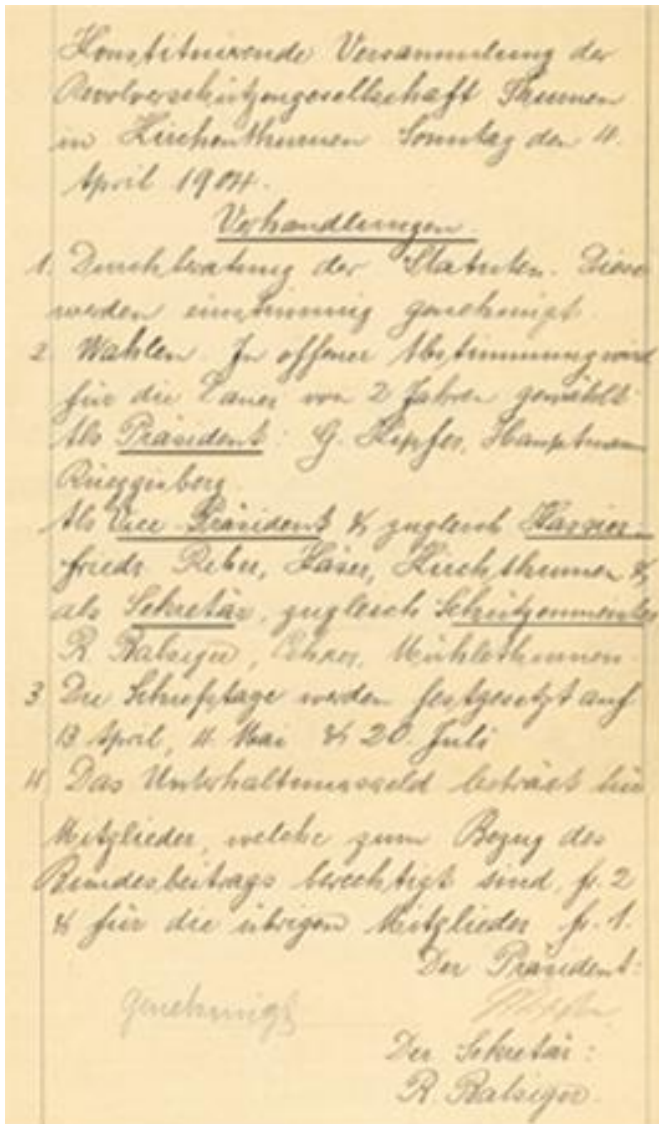 Konstituirende Versammlung der
Revolverschützengesellschaft Thurnen
in Kirchenthurnen Sonntag den 4.
April 1904.
Verhandlungen.
1. Durchberatung der Statuten. Diese
werden einstimmig genehmigt.
2. Wahlen. In offener Abstimmung wird
für die Dauer von 2 Jahren gewählt
Als Präsident: G. Kipfer, Hauptmann
Rüeggisberg.
Als Vice-Präsident & zugleich Kassier:
Friedr. Reber, Käser, Kirchthurnen &
als Sekretär, zugleich Schützenmeister
R. Balsiger, Lehrer, Mühlethurnen.
3 Die Schiesstage werden festgesetzt auf
13 April, 11. Mai & 20. Juli
4 Das Unterhaltungsgeld beträgt für
Mitglieder, welche zum Bezug des
Bundesbeitrags berechtigt sind, fr. 2
& für die übrigen Mitglieder fr. 1.
Der Präsident:
genehmigt
Der Sekretär:
R. Balsiger.